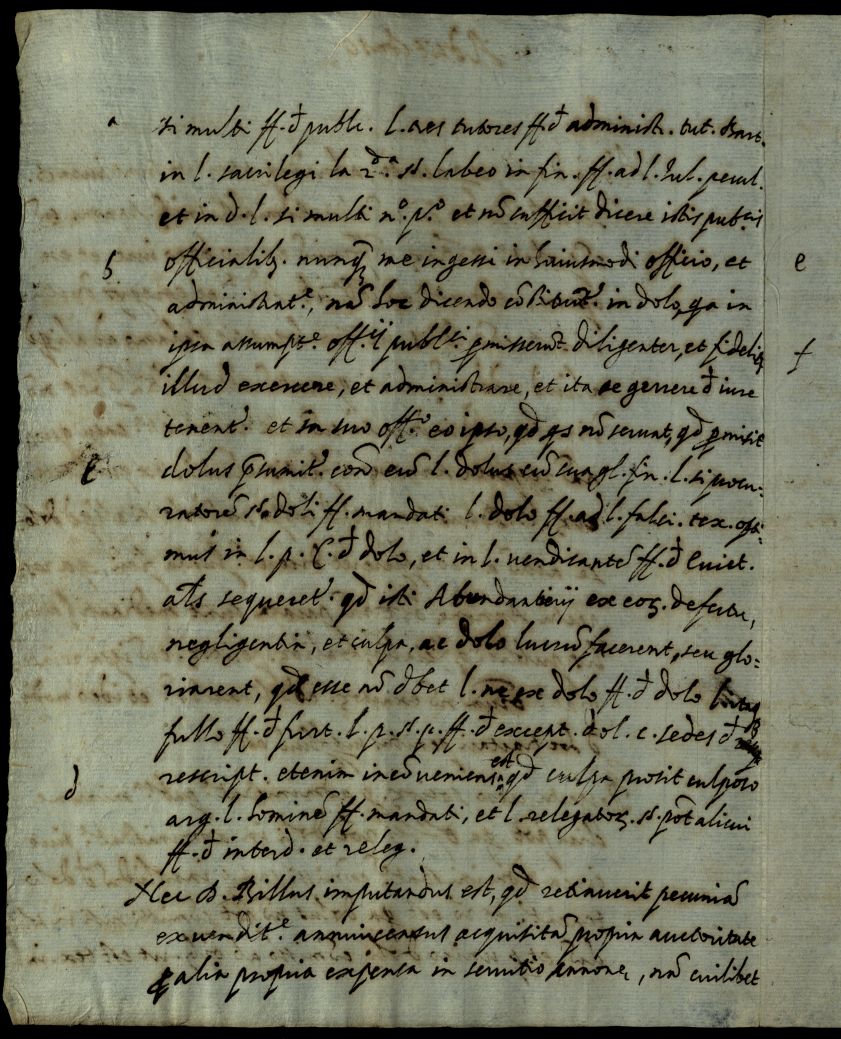 a si multi ff. đ publc. l. tres tutores ff. đ administr. tut. Bart.
in l. sacrilegi la 2.ᵈᵃ §. labeo in fin. ff. ad l. Jul. pecul.
et in đ. l. si multi n.º p.º et nō sufficit dicere istis pub.ᶜⁱˢ
b officialib9. nunq̃ me ingessi in huiusmodi officio, et e
administrat.ᵉ, nā hoc dicendo cōstituūt.ʳ in dolo, qa in
ipsa assumpt.ᵉ off.ⁱʲ publ.ᶜⁱ ꝓmisserūt diligenter, et fideliṫ f
illud exercere, et administrare, et ita se gerrere đ iure
tenent.ʳ et in suo off.º eo ipso, qđ qs nō seruat, qđ ꝓmisit
c dolus p̄sumit.ʳ conᵃ eū l. dolus cū sua gl. fin. l. si procu:
ratorē §. doli ff. mandati l. dolo ff. ad l. falci. tex. opti:
mus in l. p. C. đ dolo, et in l. vendicantē ff. đ Euict.
al̄s sequeret.ʳ qđ isti Abundantierij ex eoꝝ. defectu,
negligentia, et culpa, ac dolo lucrū facerent, seu glo:
riarent, qđ esse nō đbet l. ne ex dolo ff. đ dolo l. itaq
fullo ff. đ furt. l. p. §. p. ff. đ except. dol. c. sedes đ
d rescript. etenim incōueniens est qđ culpa prosit culposo
arg. l. hominē ff. mandati, et l. relegatoꝝ. §. pōt alicui
ff. đ interd. et releg.
Nec D. Billus imputandus est, qđ retinuerit pecuniā
ex vendit.ᵉ annui census acquisitā propria auctoritate
ꝓ alia propria expensa in seruitio Annone, nā cuilibet